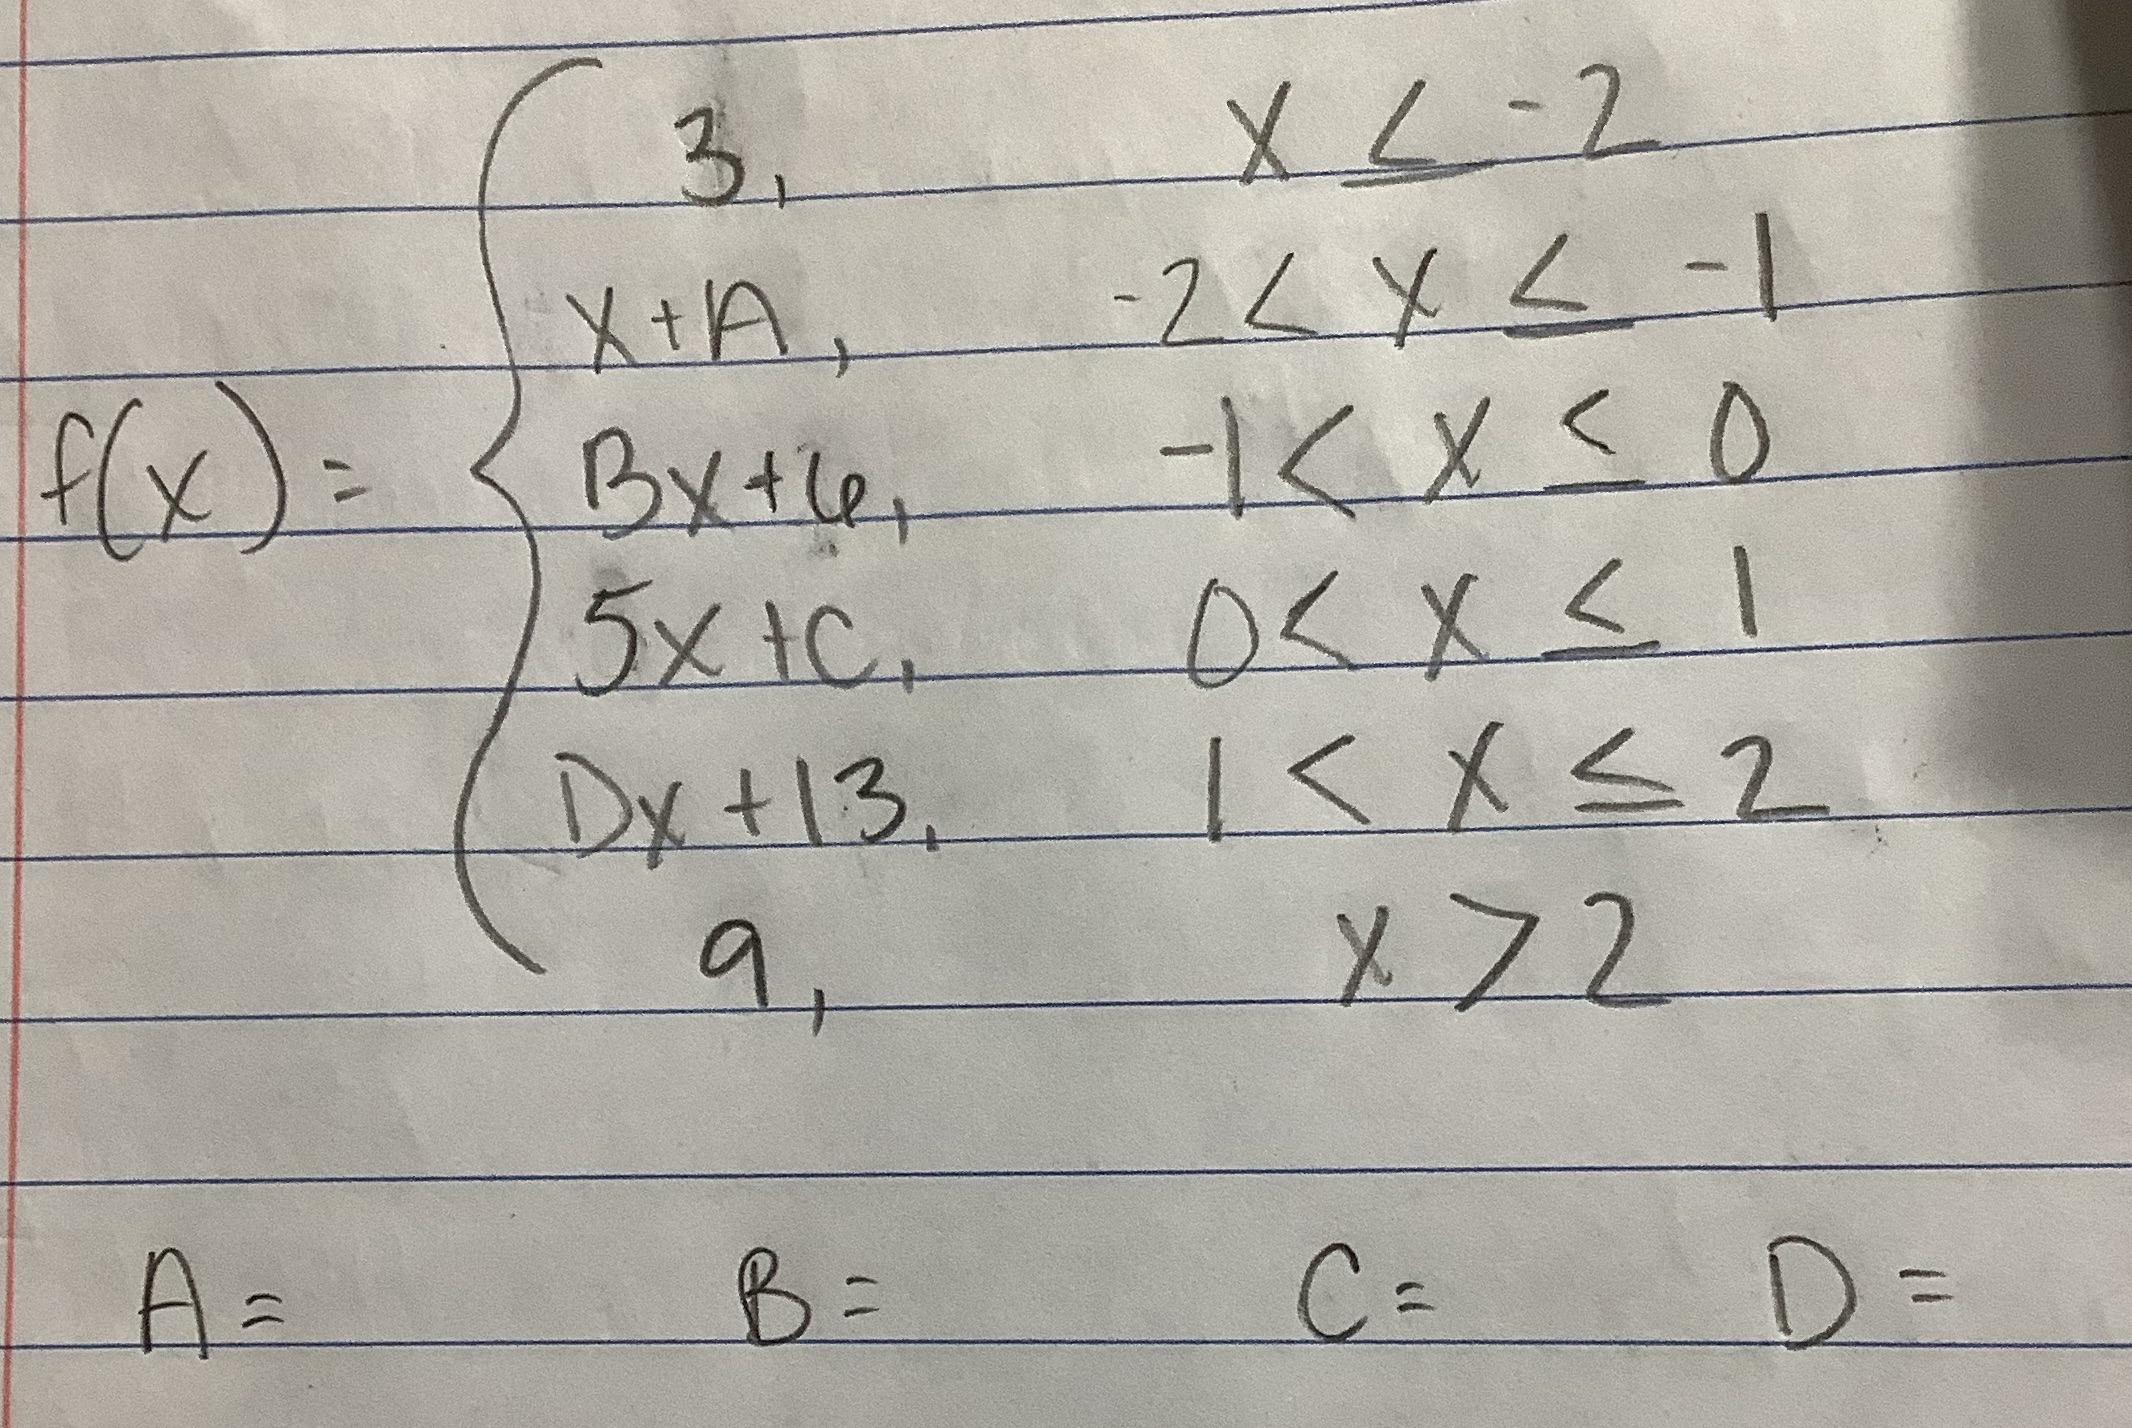 3, x ≤ -2
x+A, -2 < x ≤ -1
f(x) = Bx+6, -1 < x ≤ 0
5x+C, 0 < x ≤ 1
Dx+13, 1 < x ≤ 2
9, x > 2
A = B = C = D =